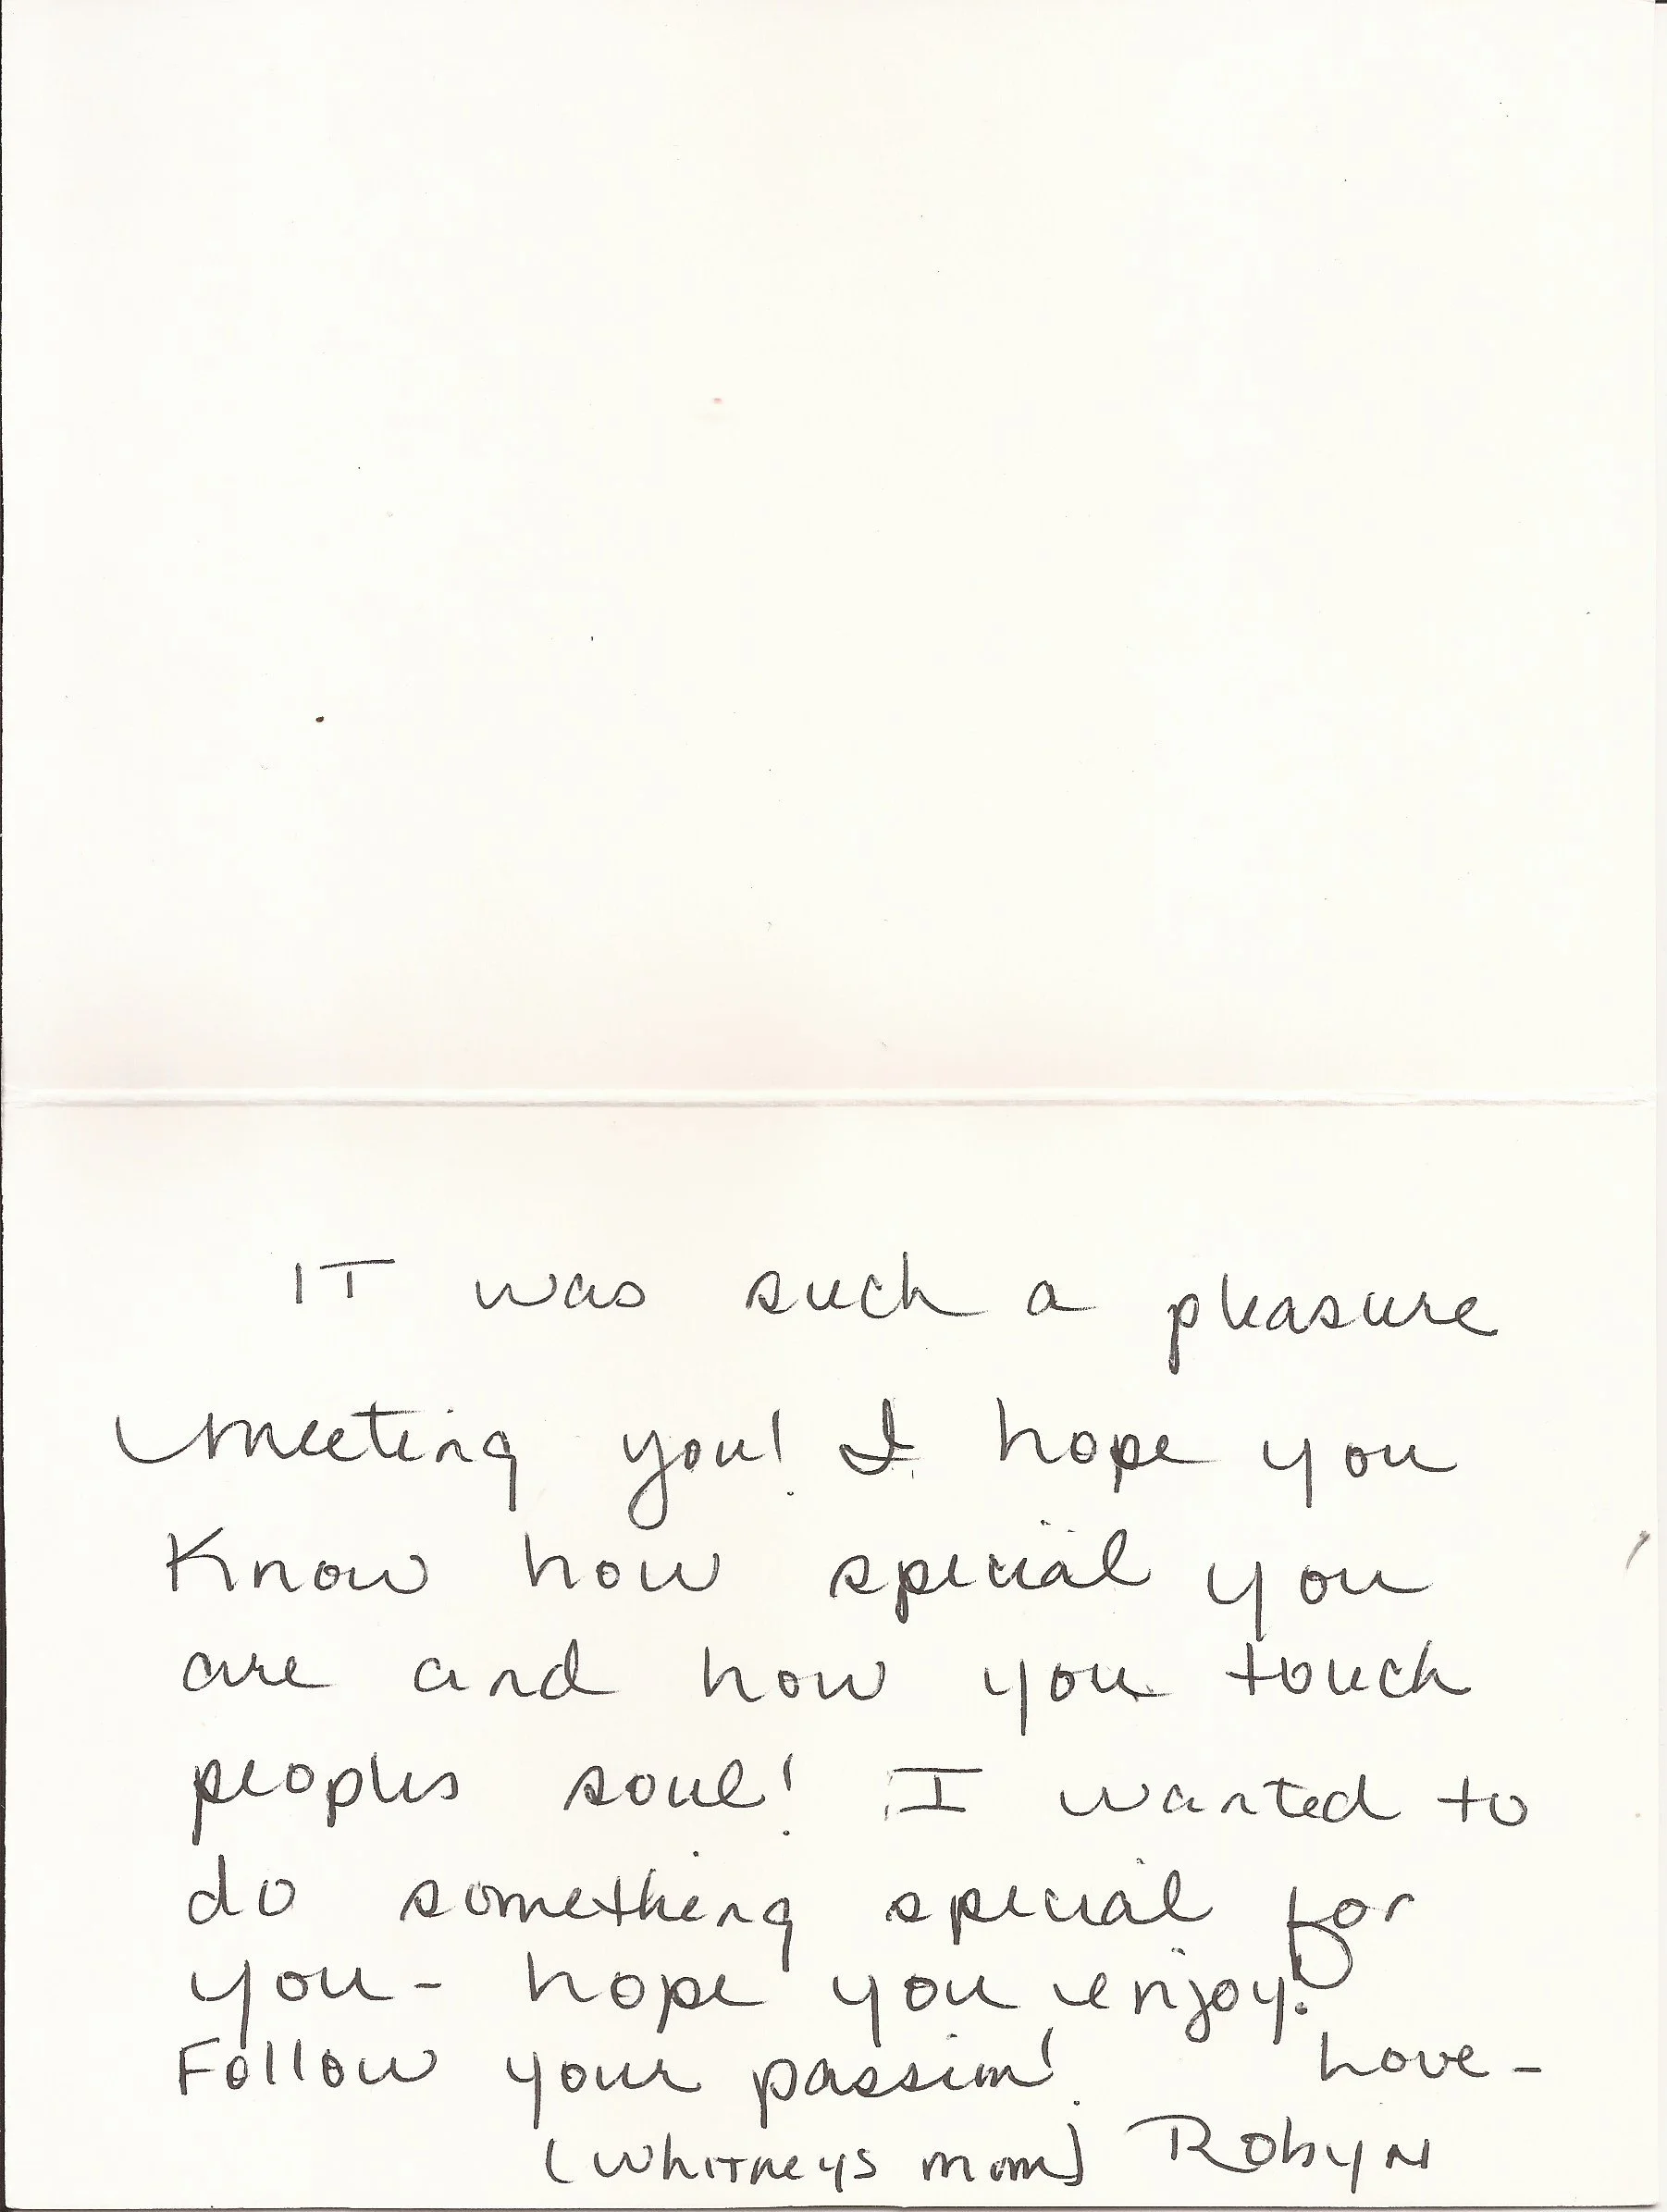 IT was such a pleasure
meeting you! I hope you
Know how special you
are and how you touch
peoples soul! I wanted to
do something special for
you- hope you enjoy!
Follow your passion! Love-
(Whitneys mom) Robyn